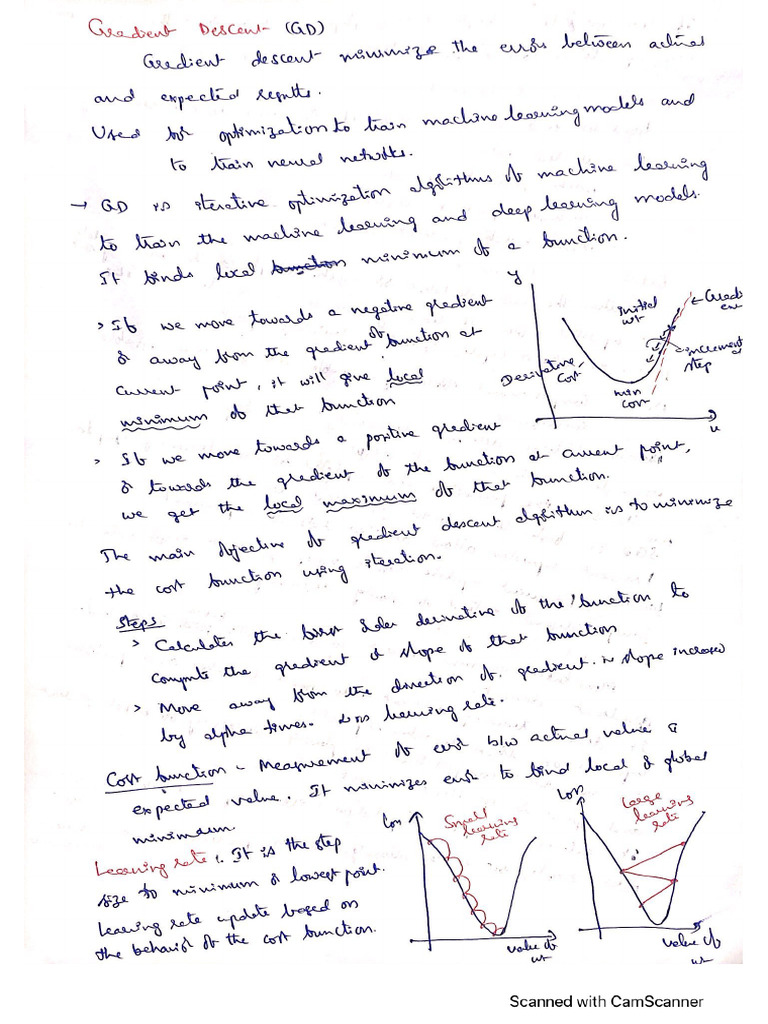 Gradient Descent (GD)
Gradient descent minimize the error between actual
and expected results.
Used for optimization to train machine learning models and
to train neural networks.
→ GD is iterative optimization algorithms of machine learning
to train the machine learning and deep learning models.
It finds local function minimum of a function.
y
> If we move towards a negative gradient
or away from the gradient of function at
current point, it will give local
minimum of that function
Initial
wt
← Gradi
en
Increment
step
Derivative
Cost
min
cost
> If we move towards a positive gradient
or towards the gradient of the function at current point,
we get the local maximum of that function.
The main objective of gradient descent algorithm is to minimize
the cost function using iteration.
Steps
> Calculates the first order derivative of the function to
compute the gradient or slope of that function
> Move away from the direction of gradient. is slope increased
by alpha times. learning rate.
Cost function - Measurement of error b/w actual value &
expected value. It minimizes error to find local or global
minimum.
Learning rate : It is the step
size to minimum or lowest point.
Learning rate update based on
the behavior of the cost function.
Loss
Small
learning
rate
value of
wt
Loss
Large
learning
rate
value of
wt
Scanned with CamScanner